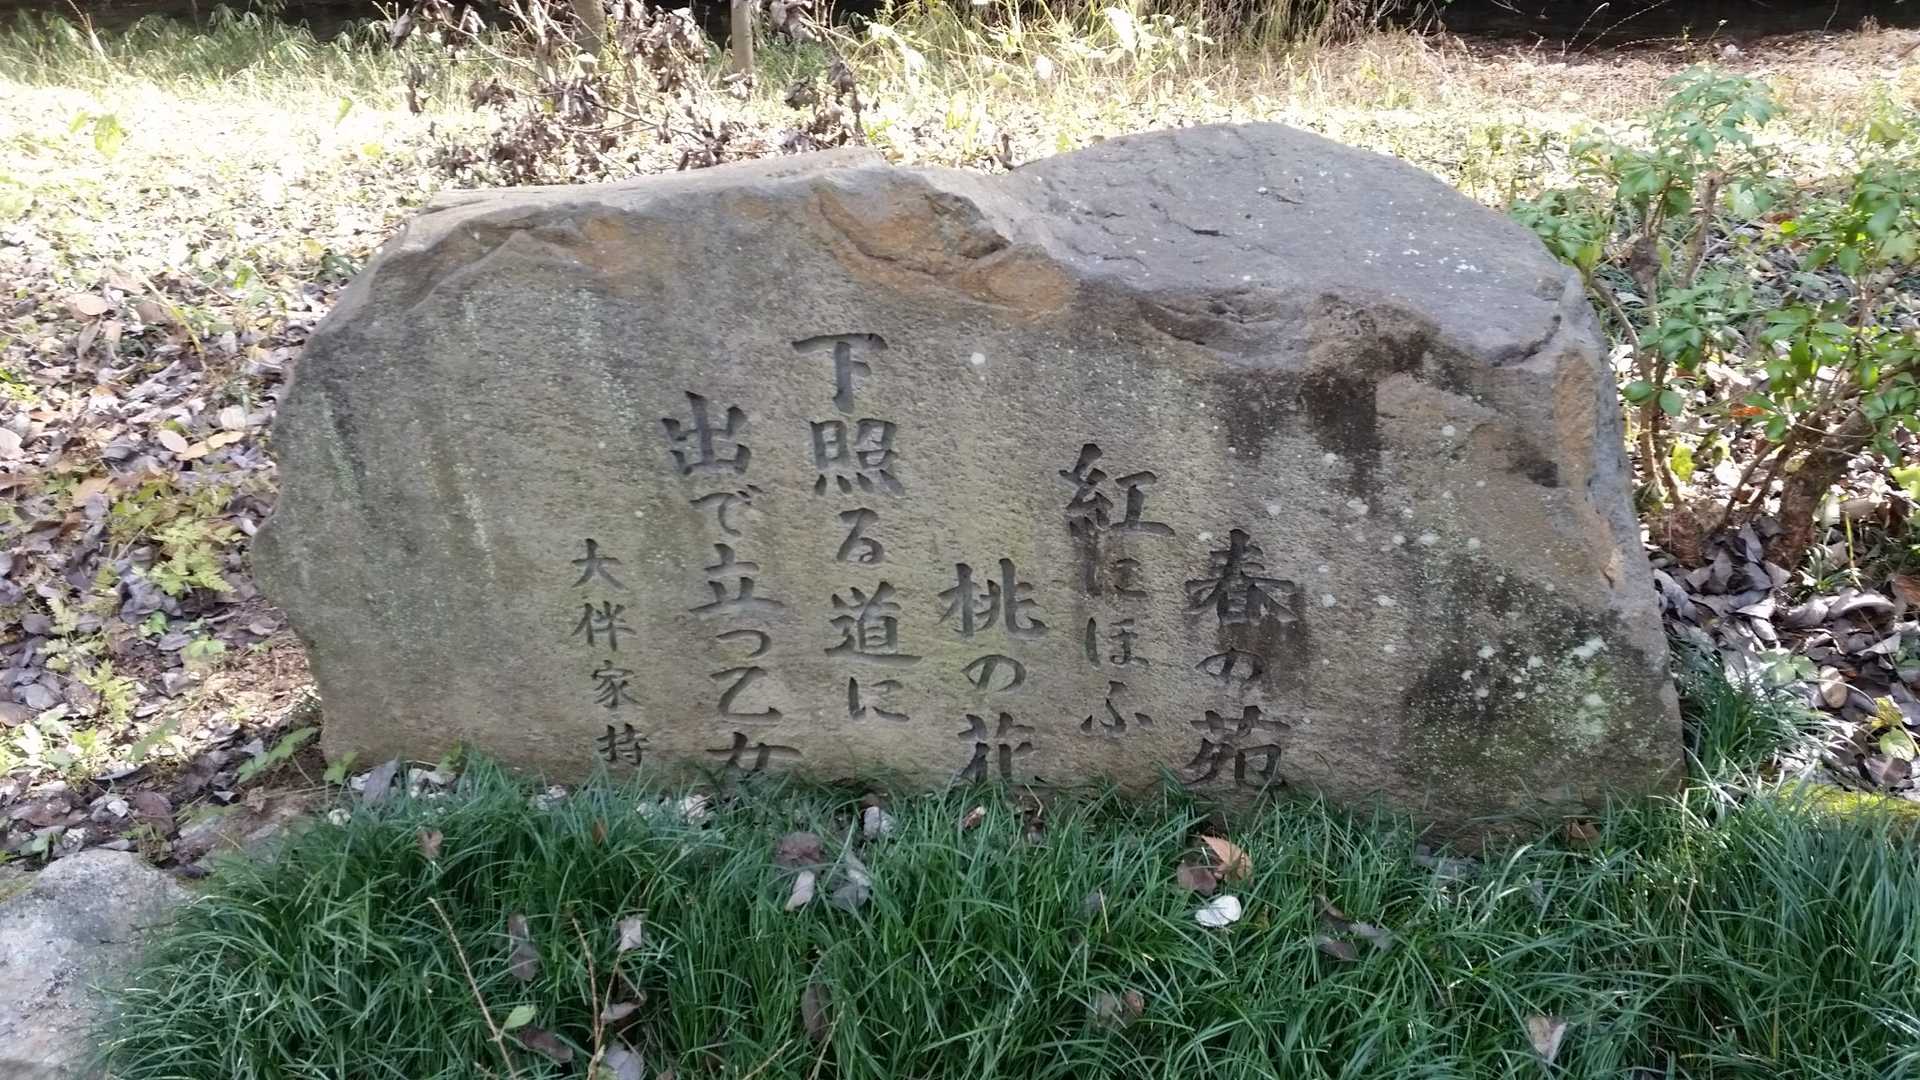 春の苑
紅にほふ
桃の花
下照る道に
出で立つ乙女
大伴家持